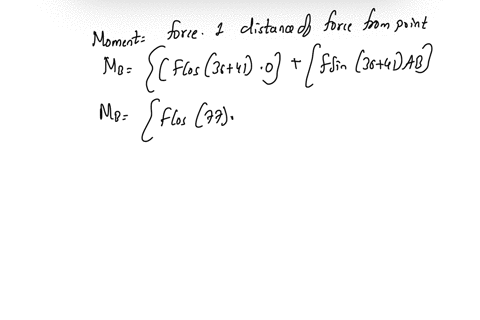 Moment= force. 1 distance of force from point
MB= {[Fcos(36+41)·0] + [Fsin(36+41)AB]
MB= {Fcos(77).